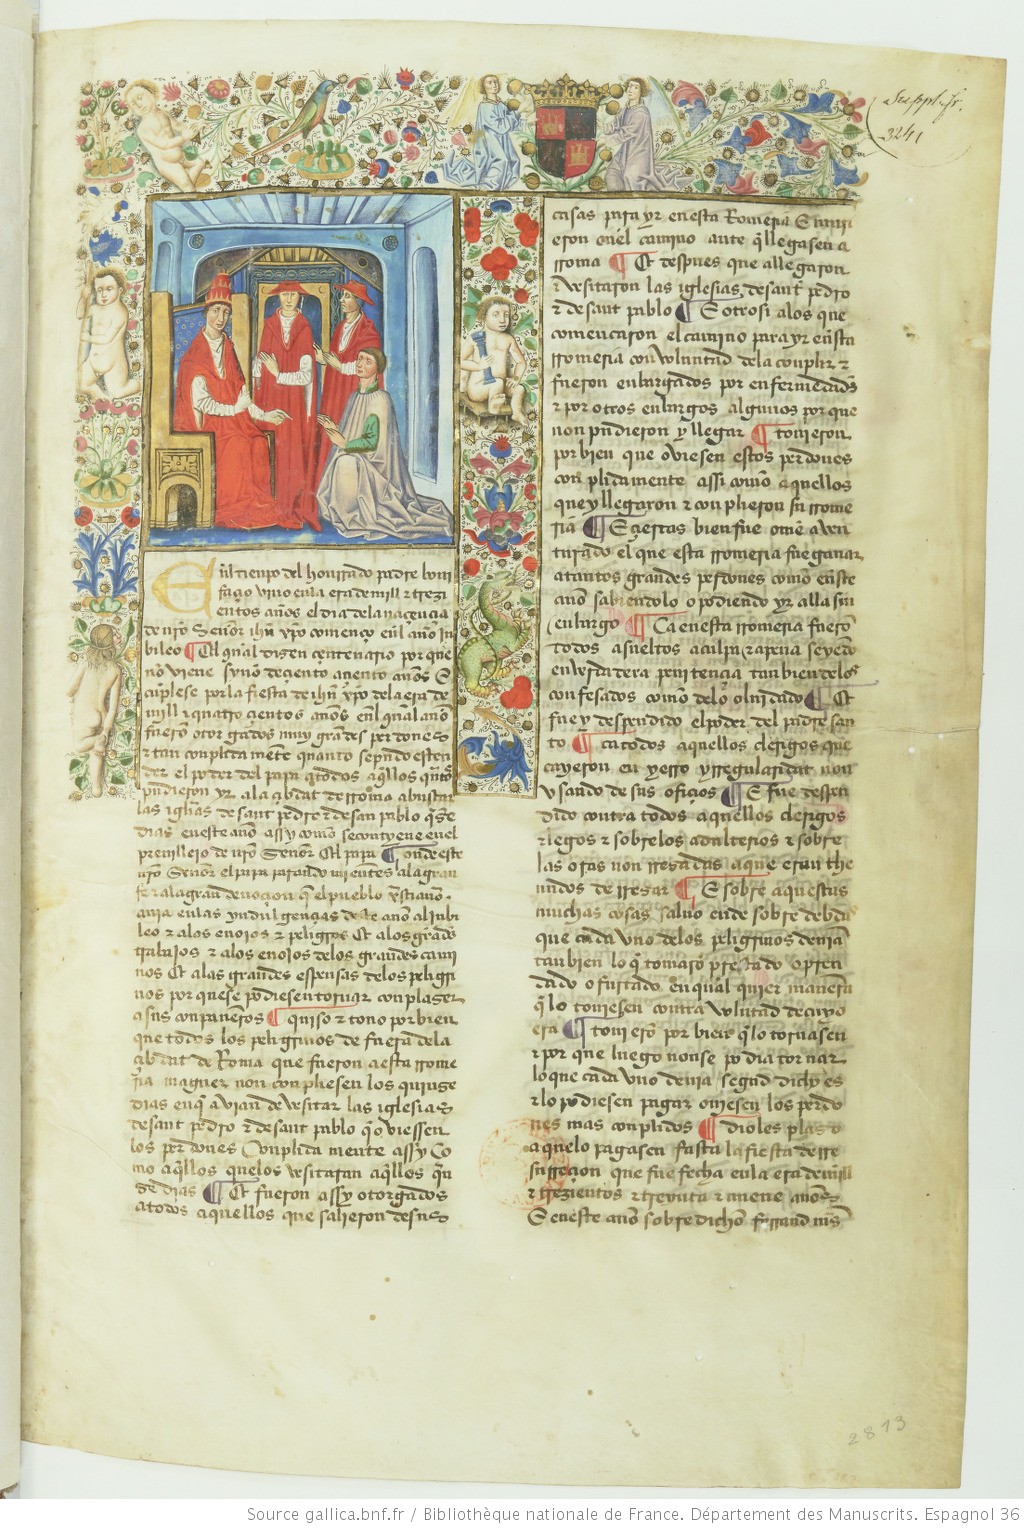 Suppl. fr.
3241
En'l tienpo del honrrado padre boni
façio vino en la era de mill & trezi
entos años el dia dela naçençia
de nr̃o Señor ihũ xp̃o començo en'l año iu
bileo ¶ El qual dizen çentenario por que
nõ viene synõ de çento a çento años E
cũplese por la fiesta de ihũ xp̃o dela era de
mill & quatro çientos años en'l qual año
fueron otorgados muy grandes perdones
& tan conplida mente quanto se pudo esten
der el poder del papa a todos aq̃llos q̃nto
pudieron yr a la çibdat de rroma a buscar
las igl̃ias de sant pedro & de san pablo q̃nze
dias en este año assy como se contyene en el
previllejo de nr̃o Señor El papa ¶ onde este
nr̃o Señor el papa parando mientes a la gran
fe & a la gran devoçion q̃ el pueblo xp̃stiano
avia en las yndulgençias deste año al iubi
leo & a los enojos & peligros Et a los grãdes
trabajos & a los enojos de los grandes cami
nos Et a las grandes espensas delos peligri
nos por que se podiesen tornar con plazer
a sus conpañeros ¶ quiso & tovo por bien
que todos los peligrinos de fuera dela
çibdat de Roma que fueron a esta rrome
ria maguer non conpliesen los quinze
dias en q̃ avian de vesitar las iglesias
de sant pedro & de sant pablo q̃ oviessen
los perdones Conplida mente assy Co
mo aq̃llos que los vesitaran aq̃llos q̃n
ze dias ¶ Et fueron assy otorgados
a todos aquellos que salieron de sus
casas para yr en esta Romeria E muri
eron en el camino ante q̃ llegasen a
rroma ¶ Et despues que allegaron
& vesitaron las iglesias de sant pedro
& de sant pablo ¶ E otrosi a los que
començaron el camino para yr en esta
rromeria con voluntad dela conplir &
fueron enbargados por enfermedades
& por otros enbargos algunos por que
non pudieron y llegar ¶ tovieron
por bien que oviesen estos perdones
conplidamente assi como aquellos
que y llegaron & conplieron su rrome
ria ¶ E çertas bien fue ome aven
turado el que esta rromeria fue ganar
a tantos grandes perdones como en este
año sabiendolo o podiendo yr alla sin
enbargo ¶ Ca en esta rromeria fueron
todos asueltos a culpa & a pena seyendo
en verdadera penitençia tan bien de los
confesados como delo olvidado ¶ Et
fue y despendido el poder del padre san
to ¶ ca todos aquellos clerigos que
cayeron en yerro yrregularidat non
usando de sus ofiçios ¶ E fue despen
dido contra todos aquellos clerigos
& legos & sobre los adulterios & sobre
las oras non rrezadas a que eran the
nudos de rrezar ¶ E sobre aquestas
muchas cosas salvo ende sobre debdas
que cada uno delos peligrinos devia
tan bien lo q̃ tomarõ prestado o pren
dado o furtado en qual quier manera
q̃ lo toviesen contra voluntad de cuyo
era ¶ tovierõ por bien q̃ lo tornasen
& por que luego non se podia tornar
lo que cada uno devia segund dicho es
& lo pudiesen pagar oviesen los perdo
nes mas conplidos ¶ dioles plazo
a que lo pagasen fasta la fiesta de rre
surreçion que fue fecha en la era de mill
& trezientos & treynta & nueve años
E en este año sobre dicho ferrand mrs̃
2813
Source gallica.bnf.fr / Bibliothèque nationale de France. Département des Manuscrits. Espagnol 36